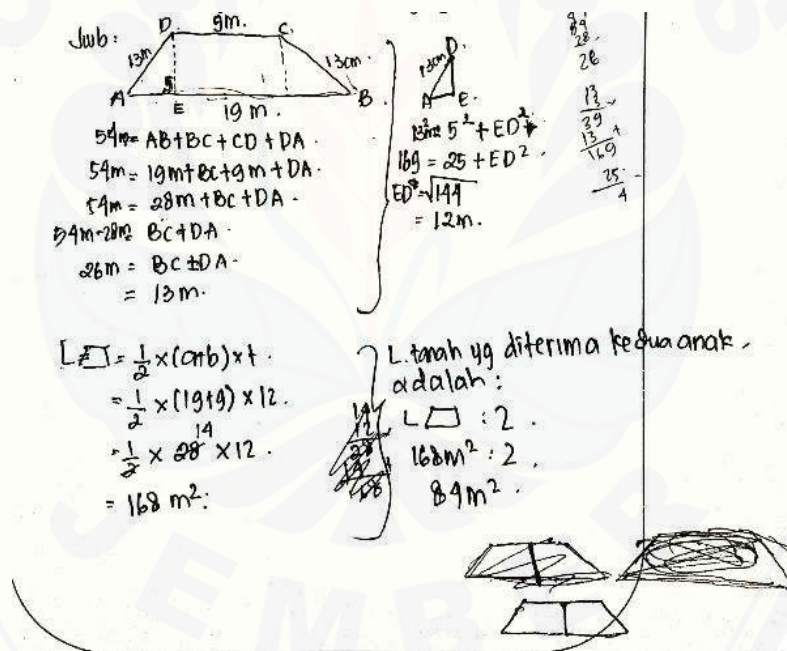 Jwb:
D. 9m. C.
13m 13cm
A 5 E B.
19 m.
54m = AB+BC+CD+DA.
54m = 19m+BC+9m+DA.
54m = 28m+BC+DA.
54m-28m = BC+DA.
26m = BC+DA.
= 13m.
D.
13cm
A E.
13²m = 5² + ED²
169 = 25 + ED².
ED = √144
= 12m.
28
26
13
13
39
13 +
169
25 -
4
L = 1/2 × (a+b) × t.
= 1/2 × (19+9) × 12.
14
= 1/2 × 28 × 12.
= 168 m².
L. tanah yg diterima kedua anak.
adalah:
L : 2.
168m² : 2.
84m².
JEMBER